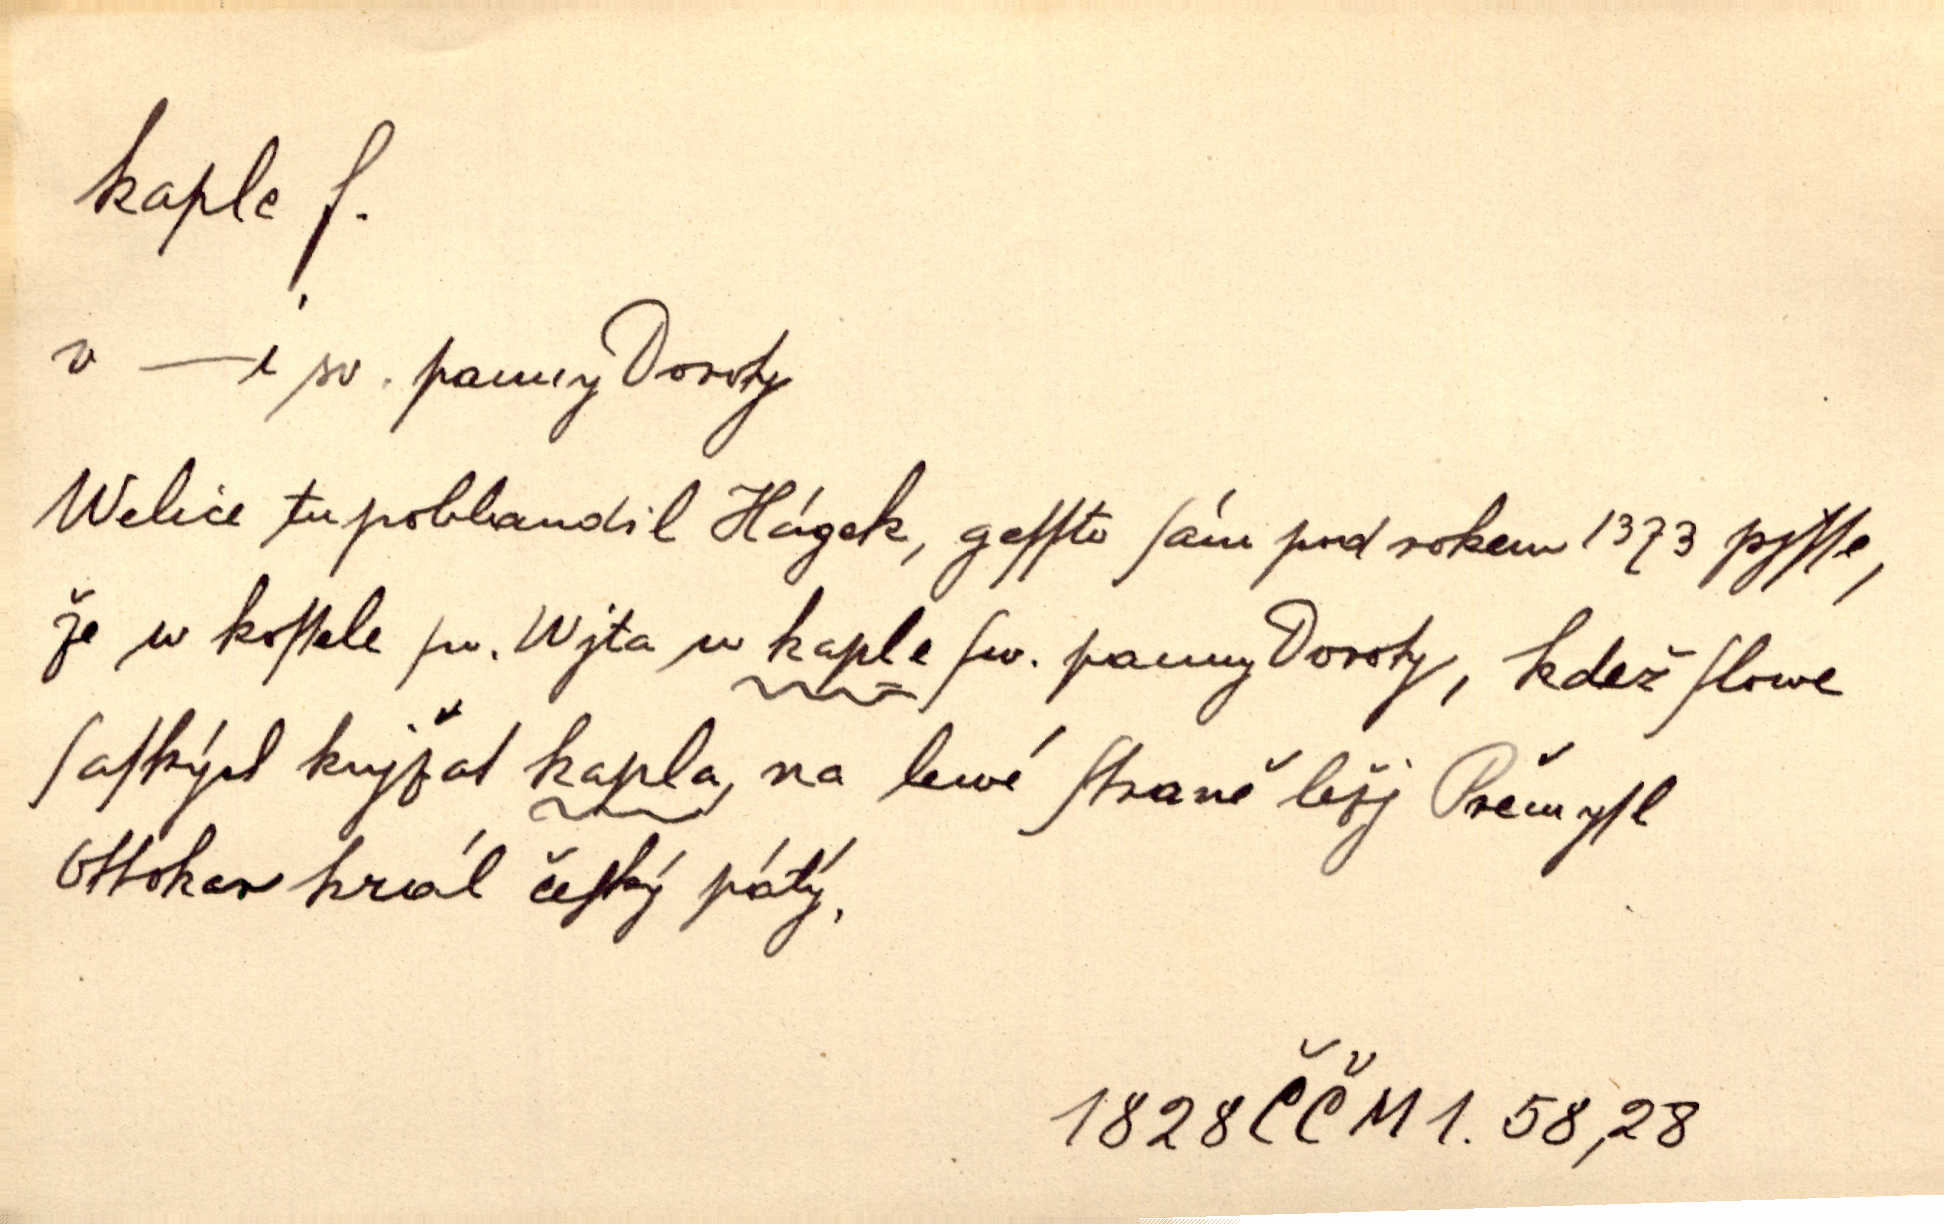 kaple f.
v —i sv. panny Doroty
Welice tu pobbaudil Hágek, geſſto ſám pod rokem 1373 pjſſe,
že w koſtele ſw. Wjta w kaple ſw. panny Doroty, kdež ſlowe
ſaſkých knjžat kapla, na lewé ſtraně ležj Přemyſl
Ottokar král čeſký pátý.
1828 ČČM 1. 58,28